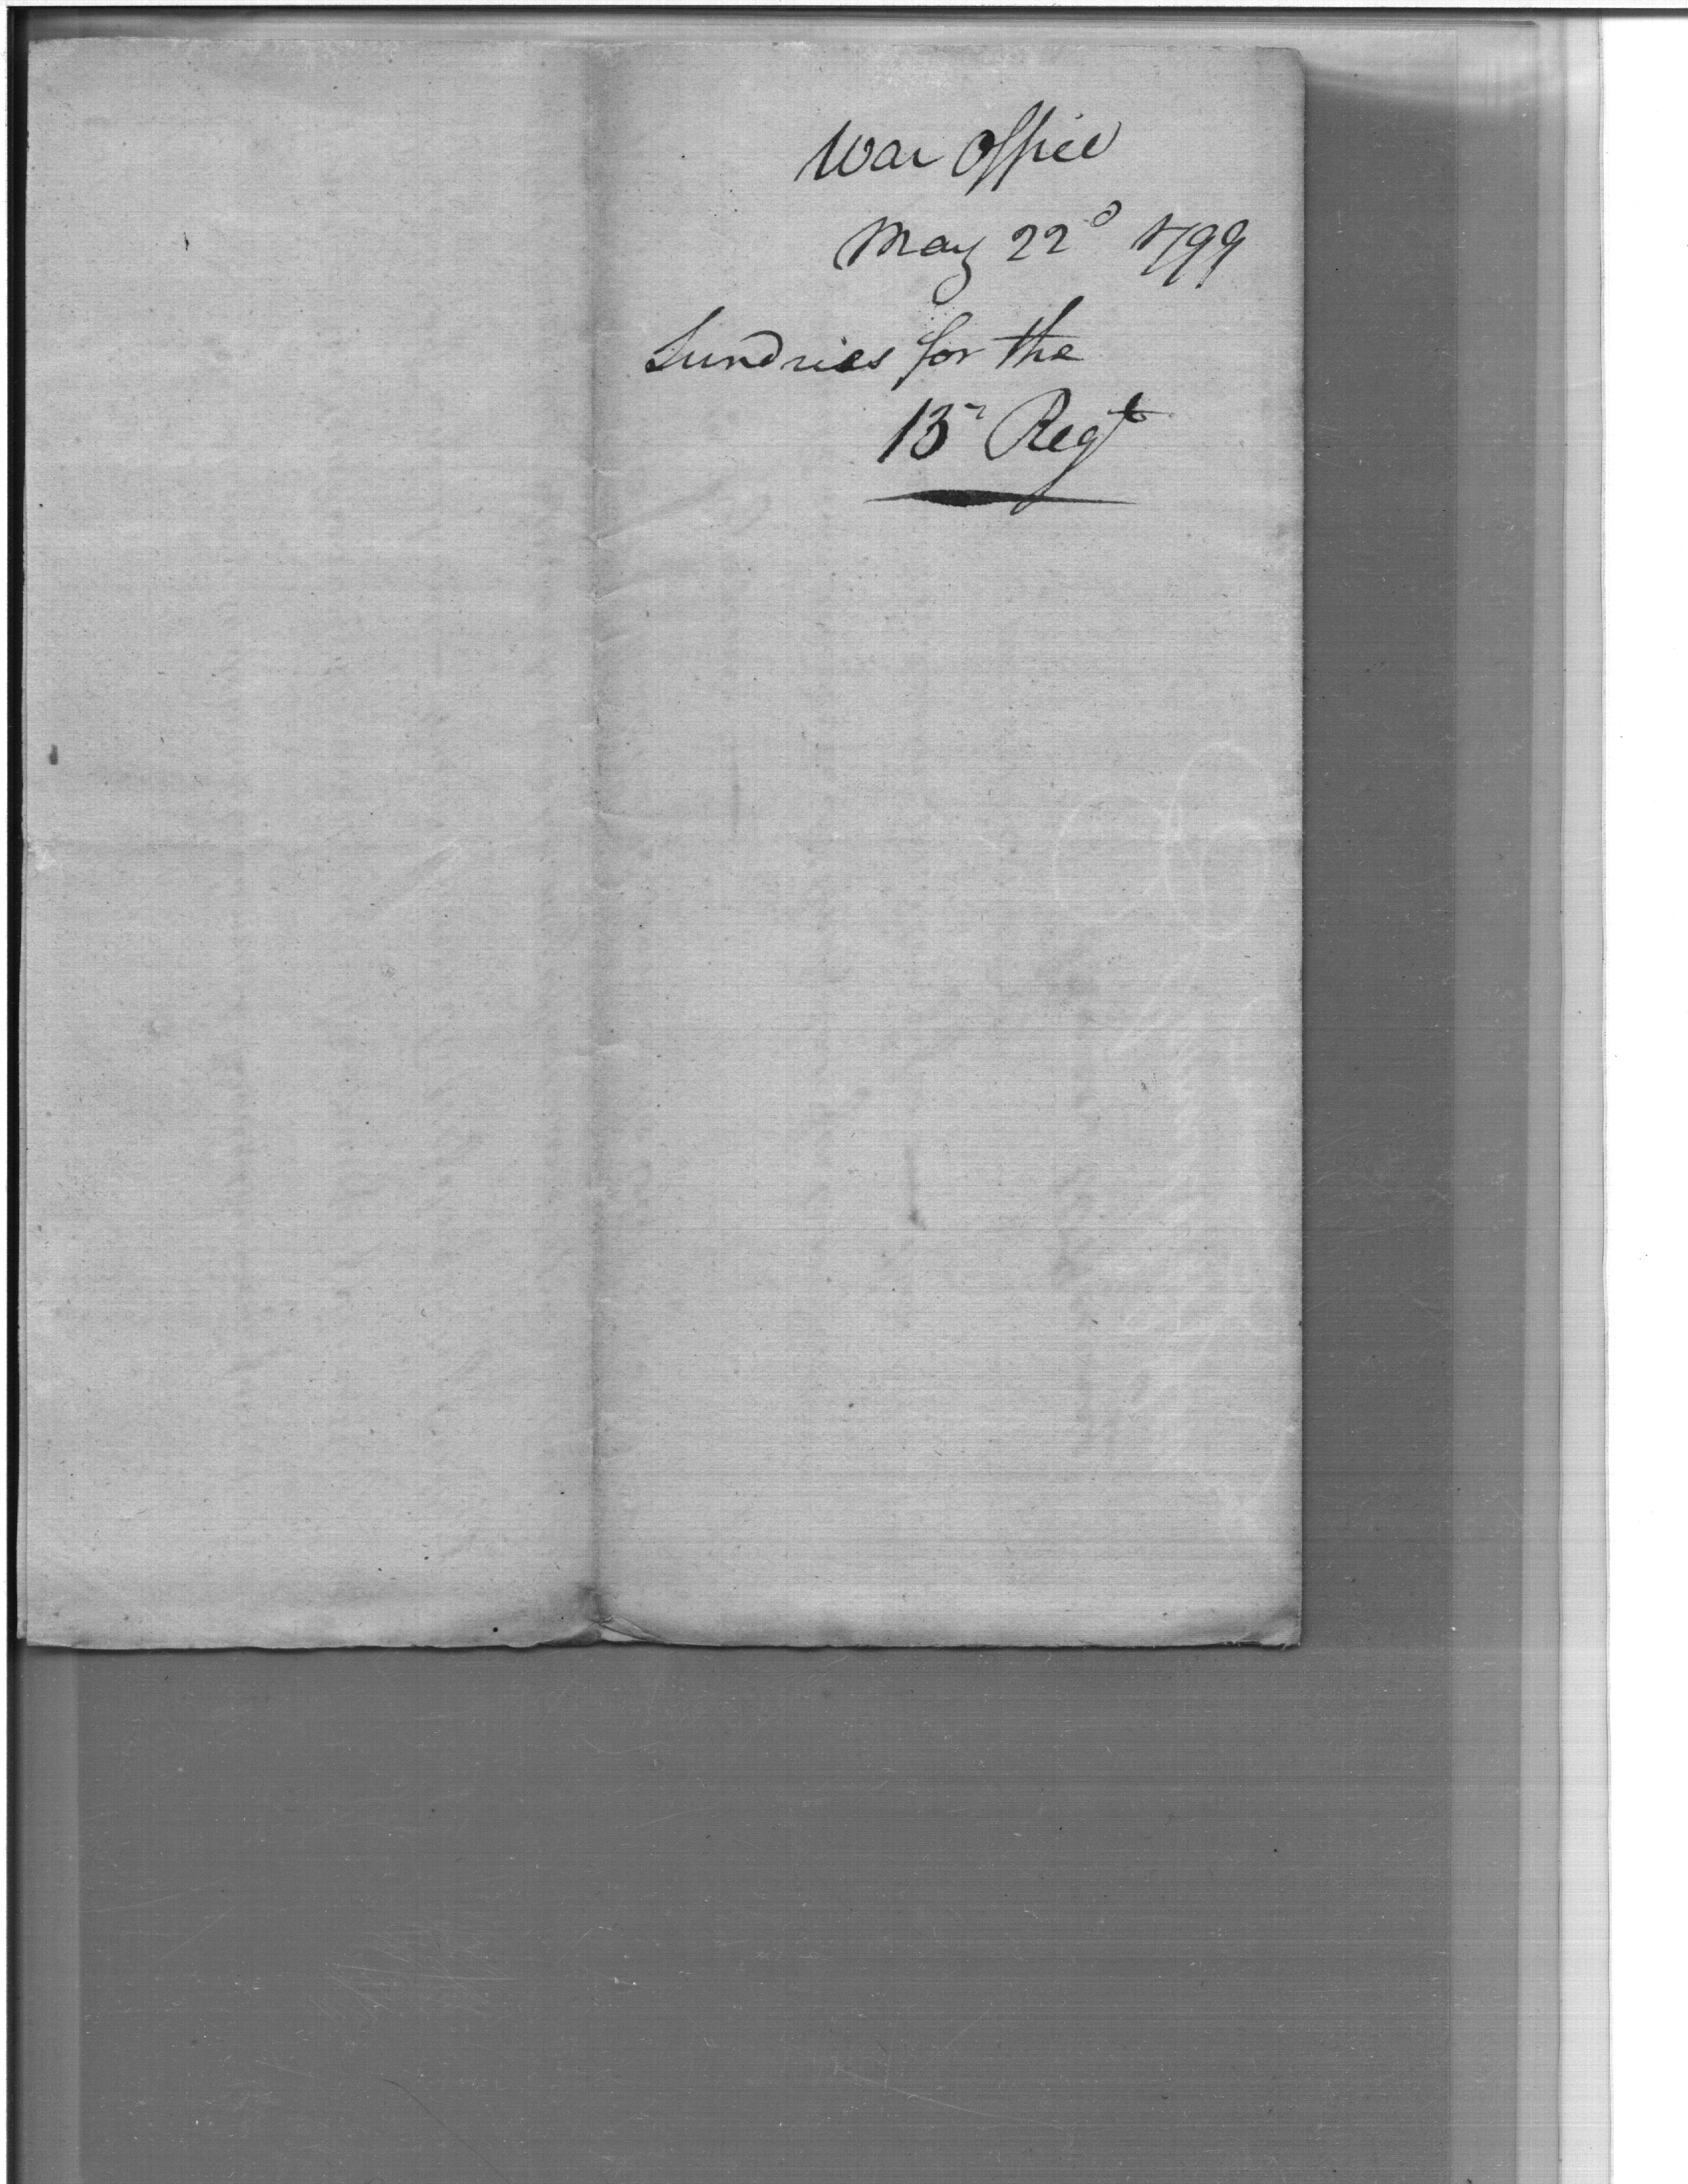 War Office
May 22d 1799
Sundries for the
13th Regt